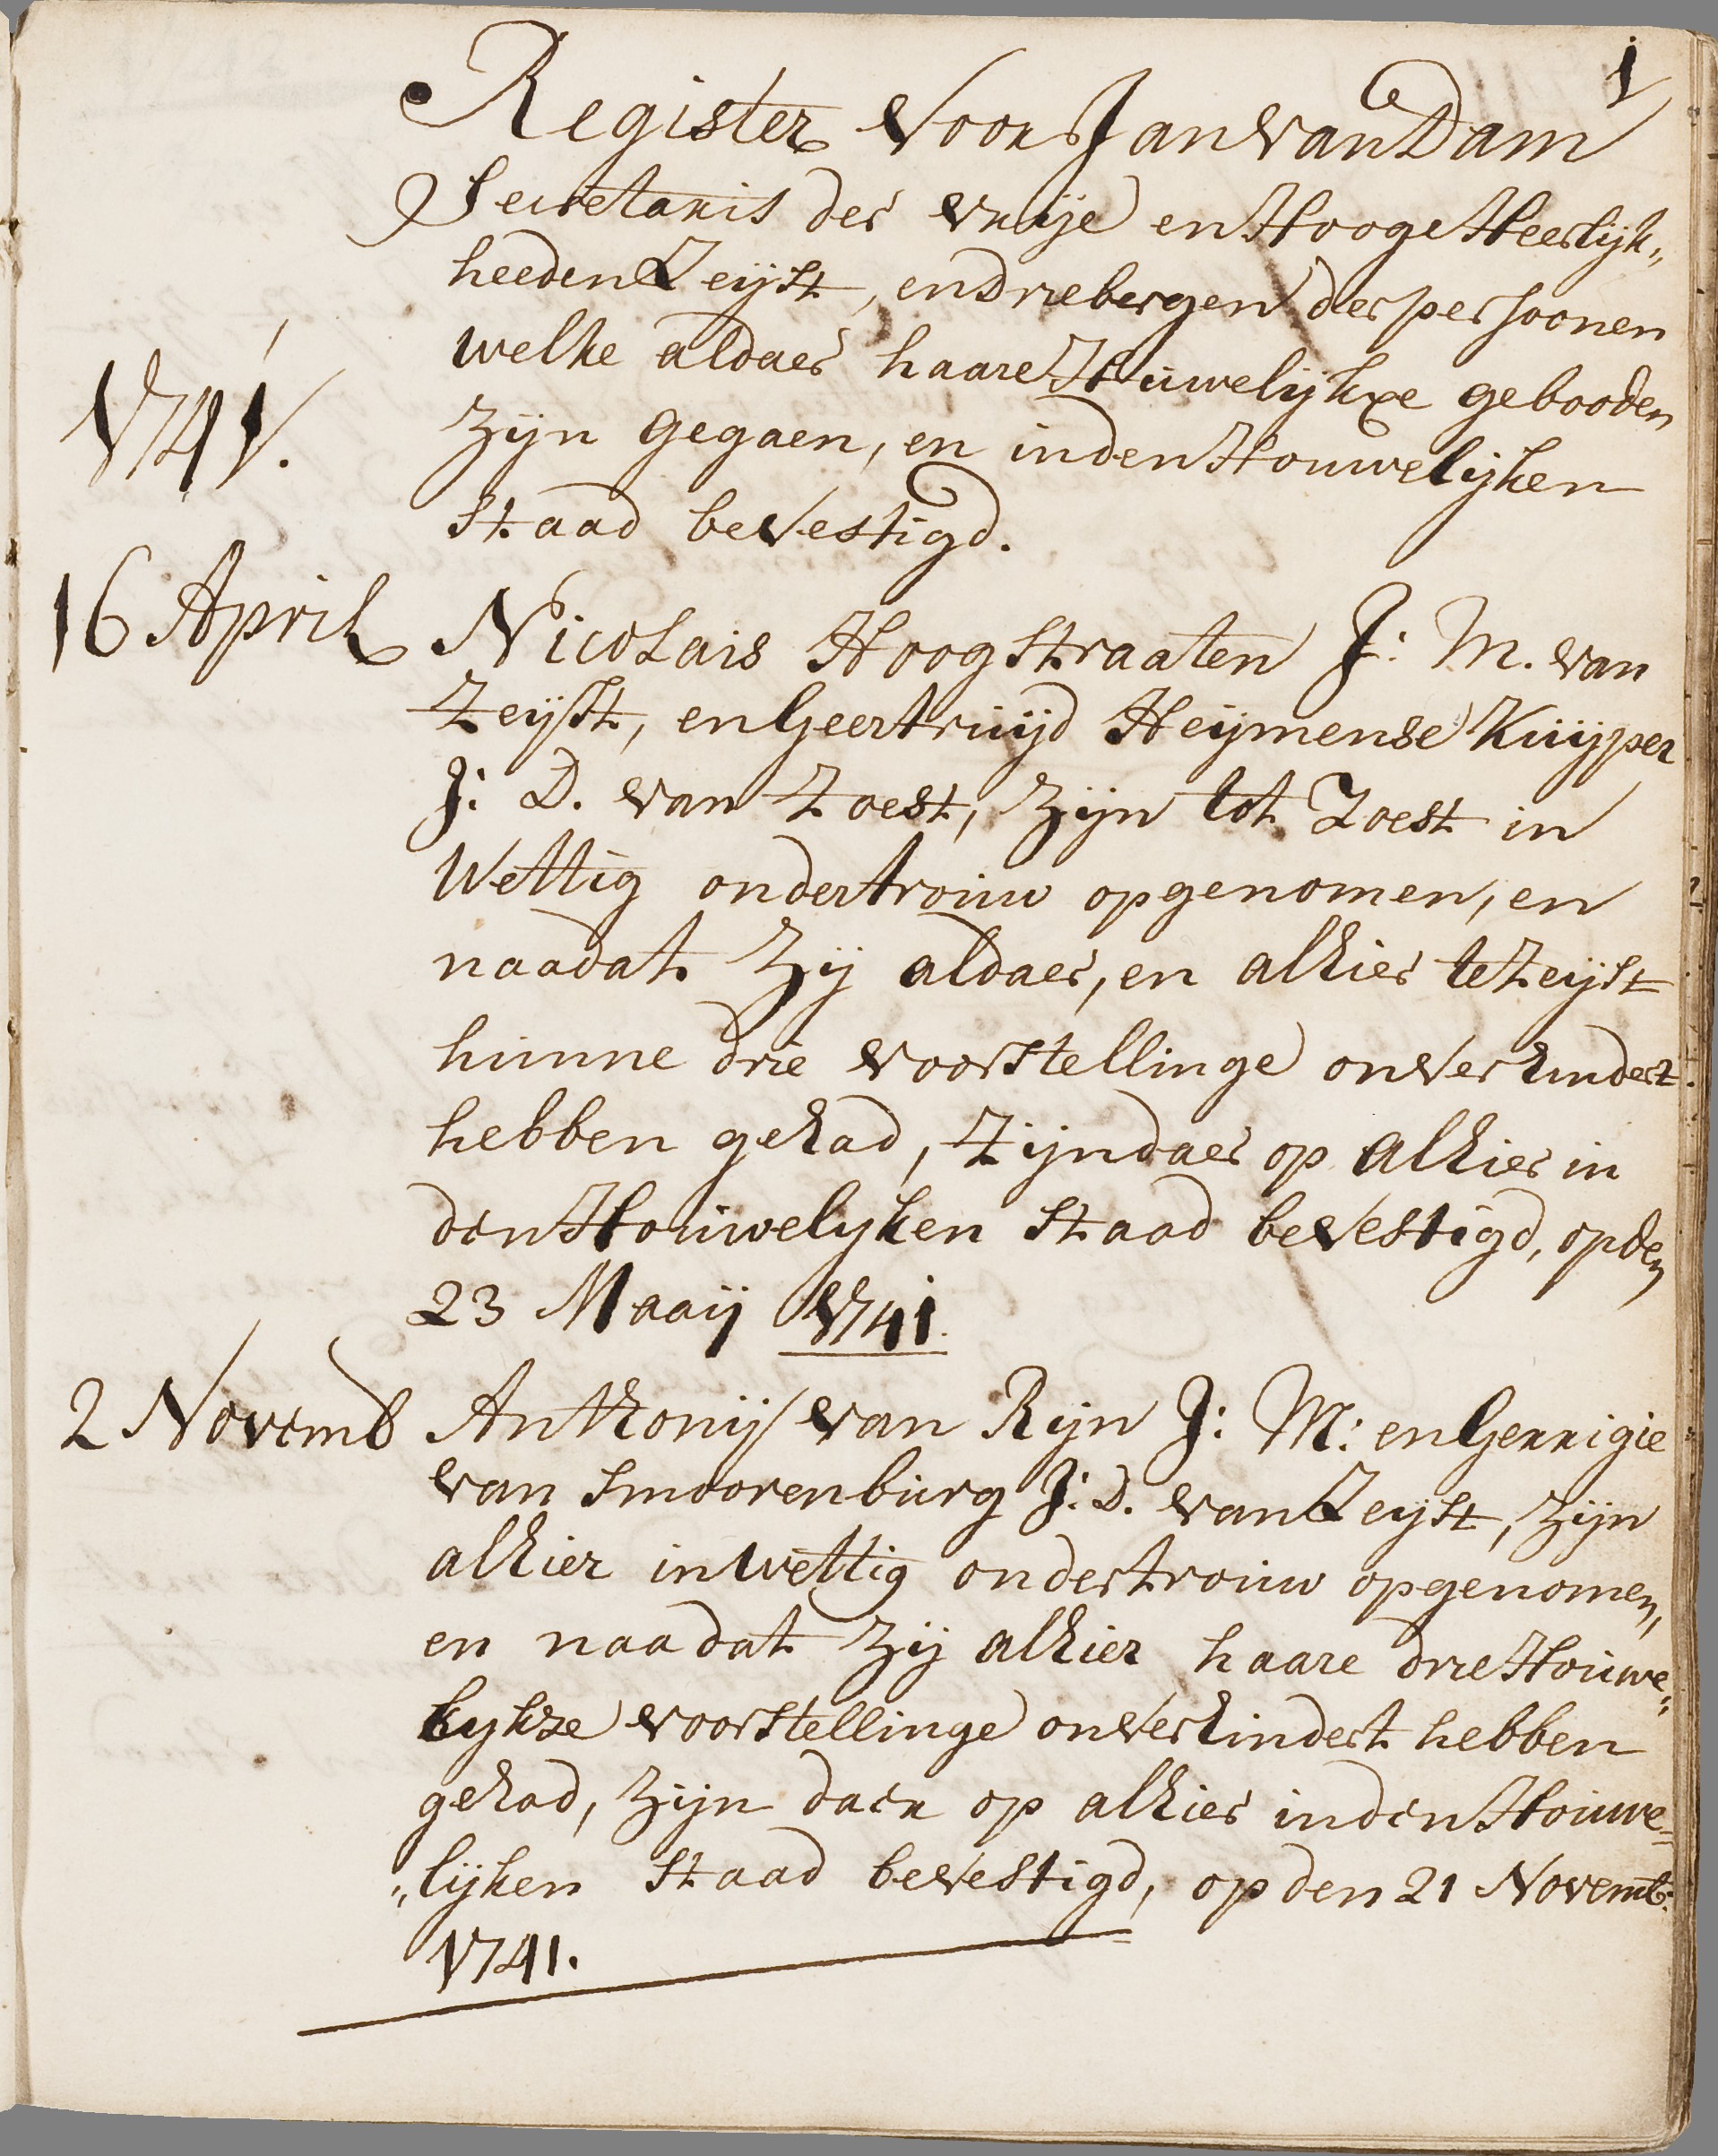 1
Register Voor Jan van Dam
Secretaris der vrije en Hooge Heerlijk„
heeden Zeijst, en Driebergen der persoonen
welke aldaer haare Huwelijkxe gebooden
1741.
zijn gegaen, en in den Houwelijken
staad bevestigd.
16 April
Nicolais Hoogstraaten J: M. van
Zeijst, en Geertruijd Heijmense Kuijper
J: D. van Zoest, zijn tot Zoest in
Wettig ondertrouw opgenomen, en
naadat zij aldaer, en alhier te Zeijst
hunne drie voorstellinge onverhindert
hebben gehad, zijn daer op alhier in
den Houwelyken staad bevestigd, op den
23 Maaij 1741.
2 Novemb
Anthonij van Rijn J: M: en Gerrigie
van Smoorenburg J: D. van Zeyst, zijn
alhier in wettig ondertrouw opgenomen,
en naadat zij alhier haare drie Houwe„
lykse voorstellinge onverhindert hebben
gehad, zijn daer op alhier in den Houwe=
„lijken staad bevestigd, op den 21 Novemb:
1741.